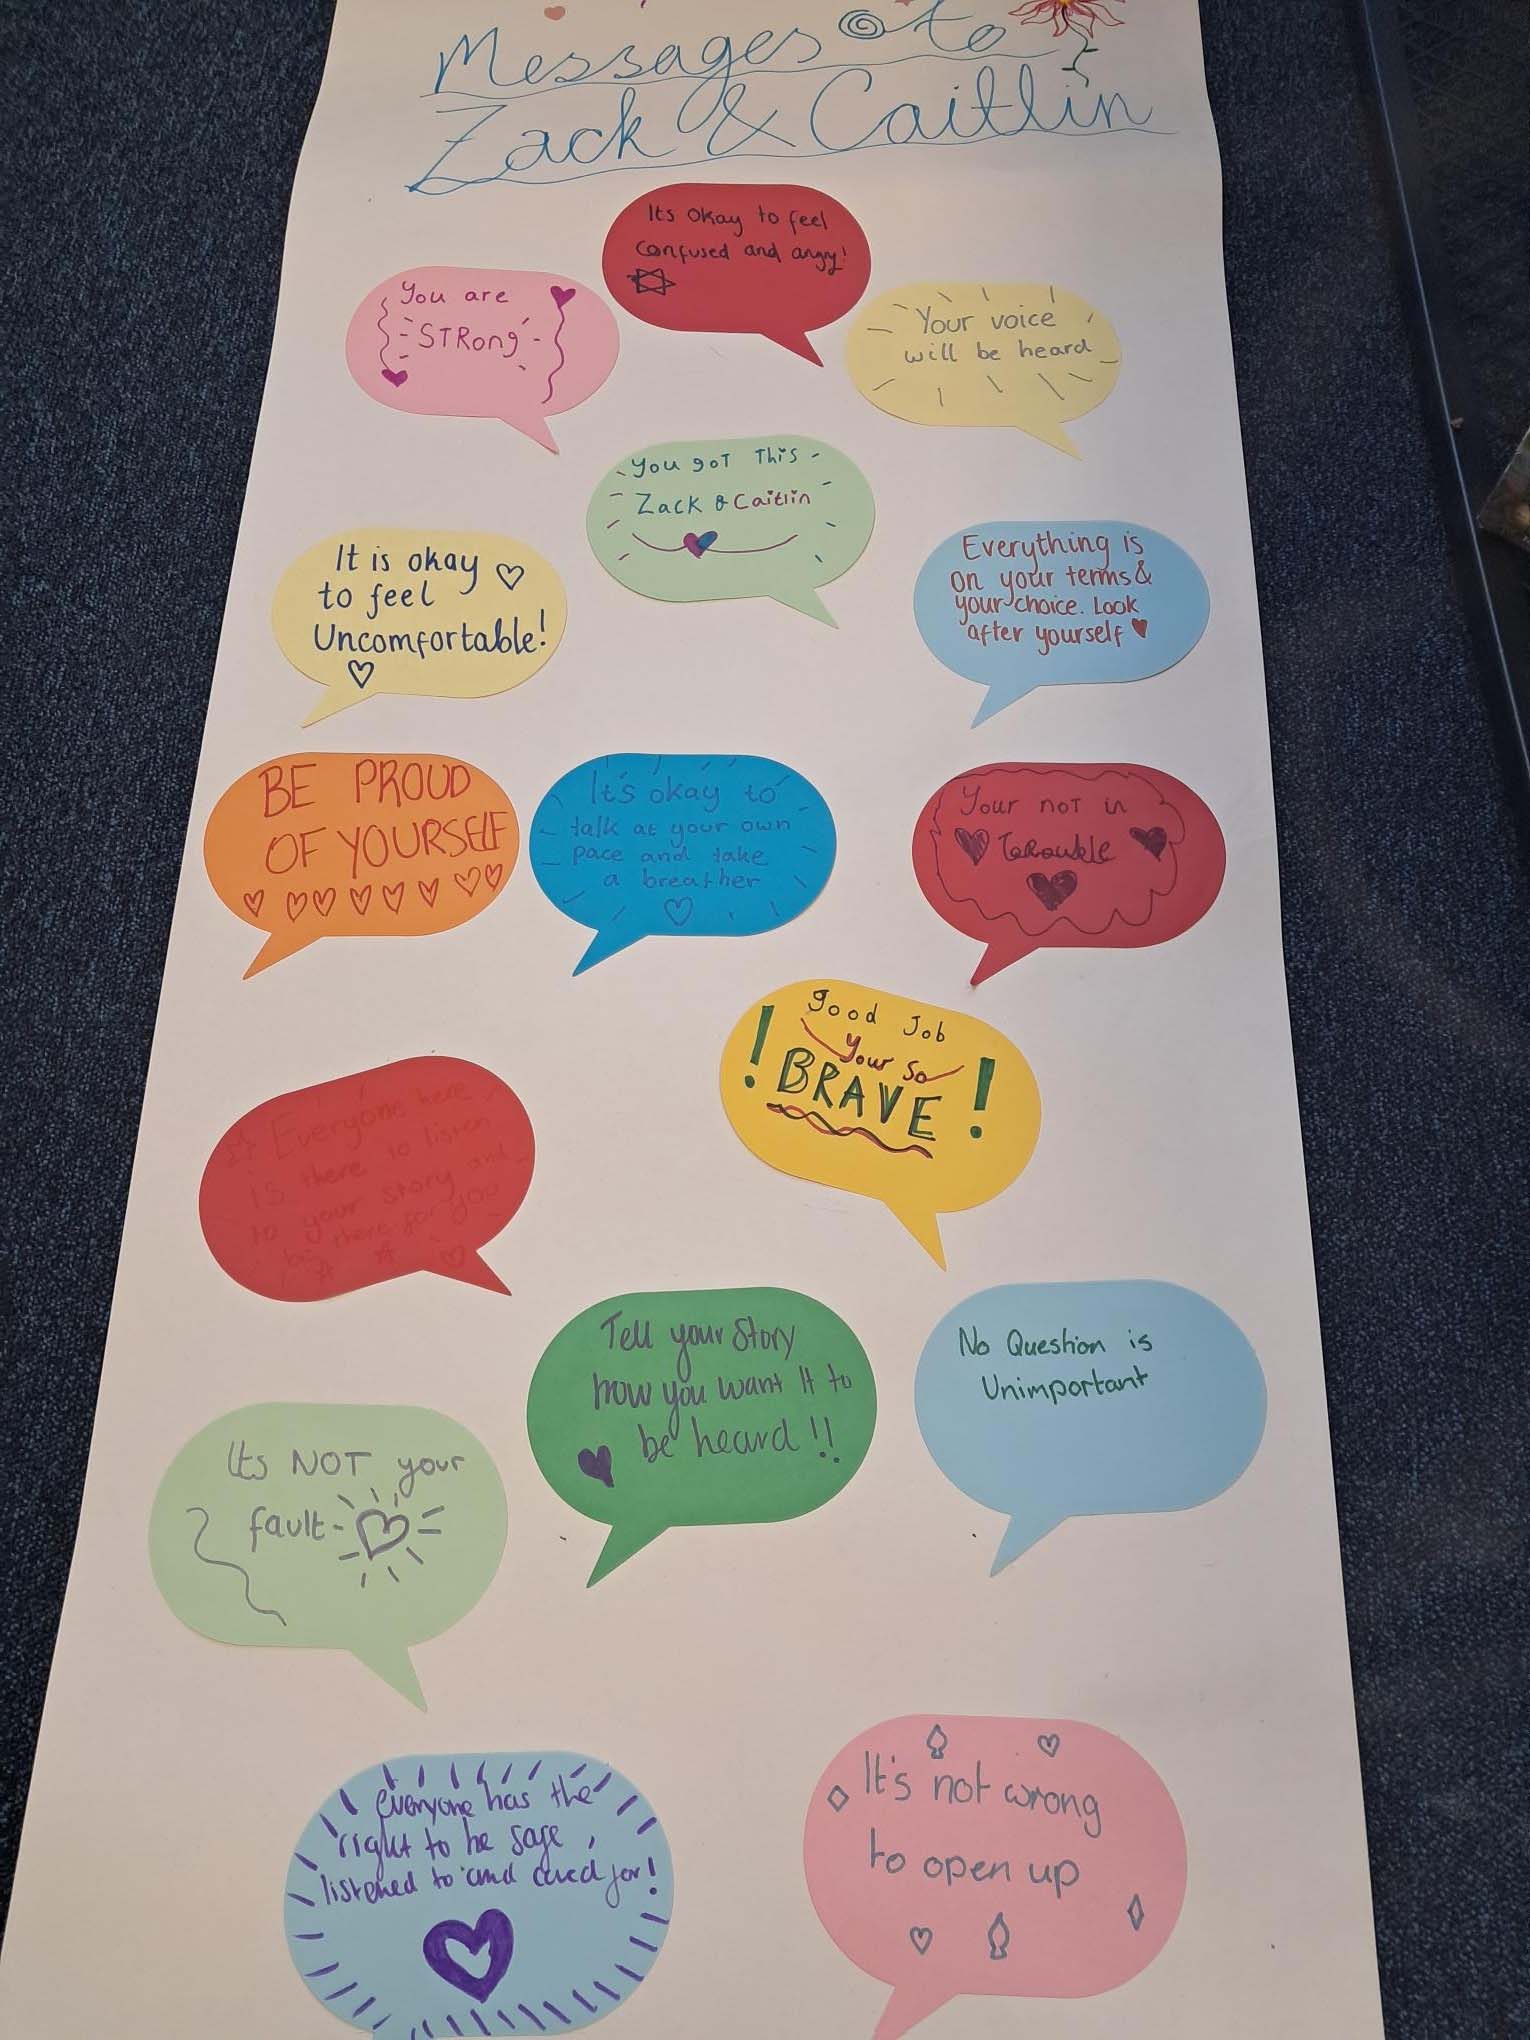 Messages to
Zack & Caitlin
Its okay to feel
confused and angry!
You are
STRong
Your voice
will be heard
You goT This
Zack & Caitlin
It is okay
to feel
Uncomfortable!
Everything is
on your terms &
your choice. Look
after yourself
BE PROUD
OF YOURSELF
It's okay to
talk at your own
pace and take
a breather
Your not in
good Job
Your so
! BRAVE !
Everyone here
is there to listen
to your story and
there for you
Tell your story
how you want it to
be heard!!
No Question is
Unimportant
Its NOT your
fault
everyone has the
right to be safe,
listened to and cared for!
It's not wrong
to open up